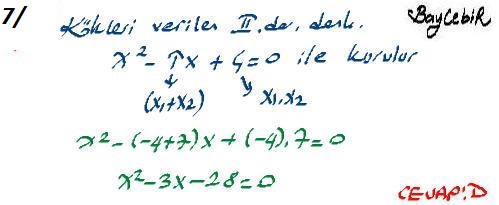 7/
Kökleri verilen II.de. denk. BayCebiR
x² - Tx + Ç = 0 ile kurulur
(x₁+x₂) x₁.x₂
x² - (-4+7)x + (-4).7 = 0
x² - 3x - 28 = 0
CEVAP:D